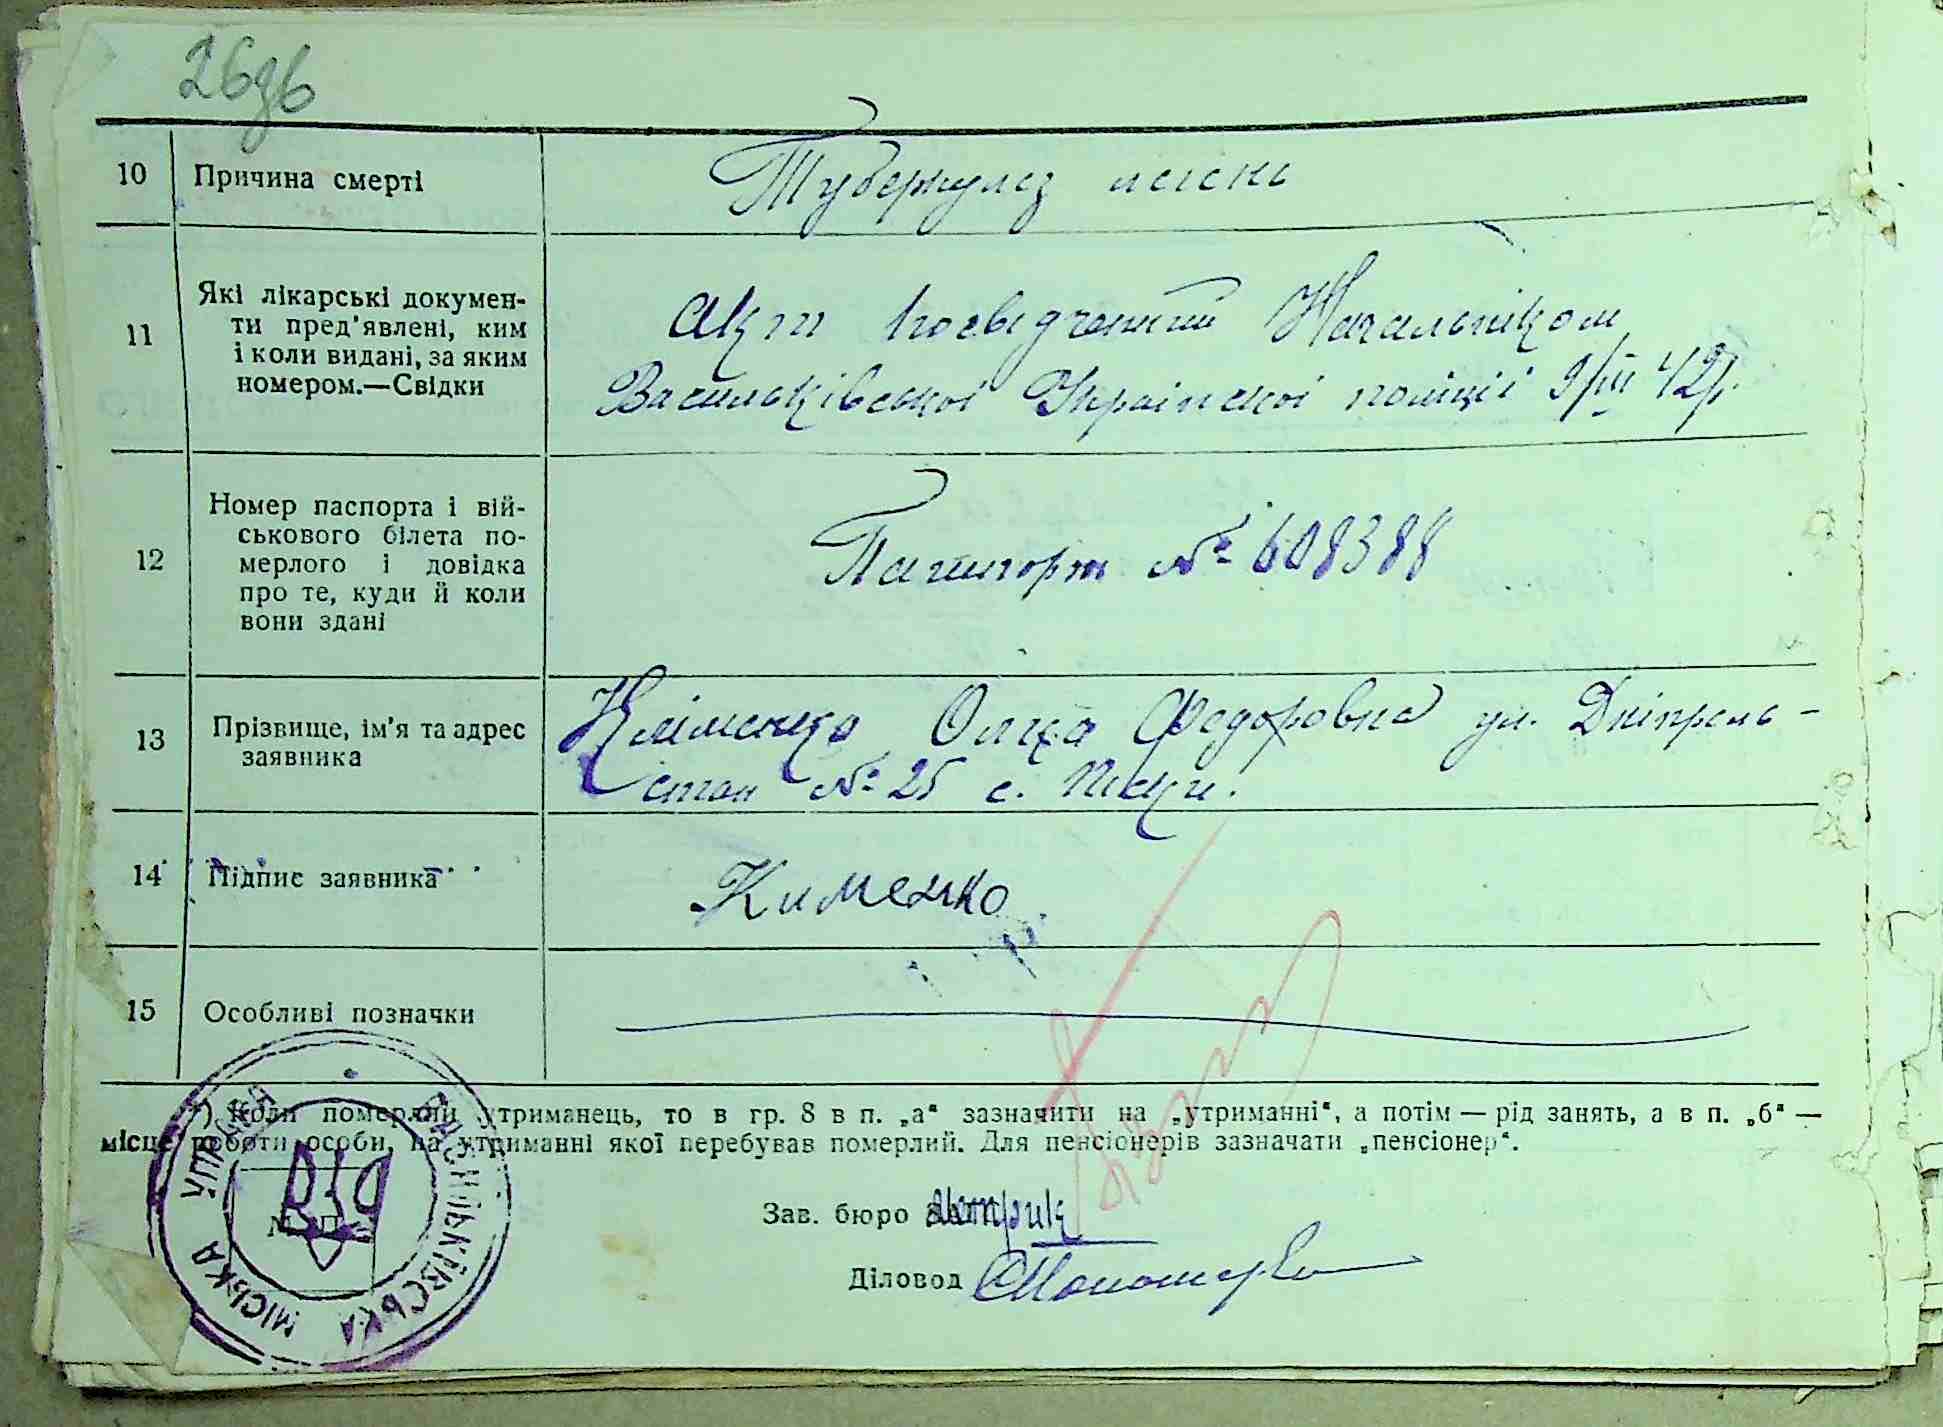 26зв
10 Причина смерті Туберкулез легень
11 Які лікарські докумен-
ти пред'явлені, ким
і коли видані, за яким
номером.—Свідки
Акт посвідчений Начальніком
Васильківської Української поліції 9/III 42р.
12 Номер паспорта і вій-
ськового білета по-
мерлого і довідка
про те, куди й коли
вони здані
Пашпорт № 608388
13 Прізвище, ім'я та адрес
заявника
Кліменко Ольга Федоровна ул. Дніпрель-
стан № 25 с. Піски.
14 Підпис заявника Клименко
15 Особливі позначки
*) Коли померлий утриманець, то в гр. 8 в п. „а“ зазначити на „утриманні“, а потім — рід занять, а в п. „б“ —
місце роботи особи, на утриманні якої перебував померлий. Для пенсіонерів зазначати „пенсіонер“.
Зав. бюро
Діловод
ВАСИЛЬКІВСЬКА МІСЬКА УПРАВА